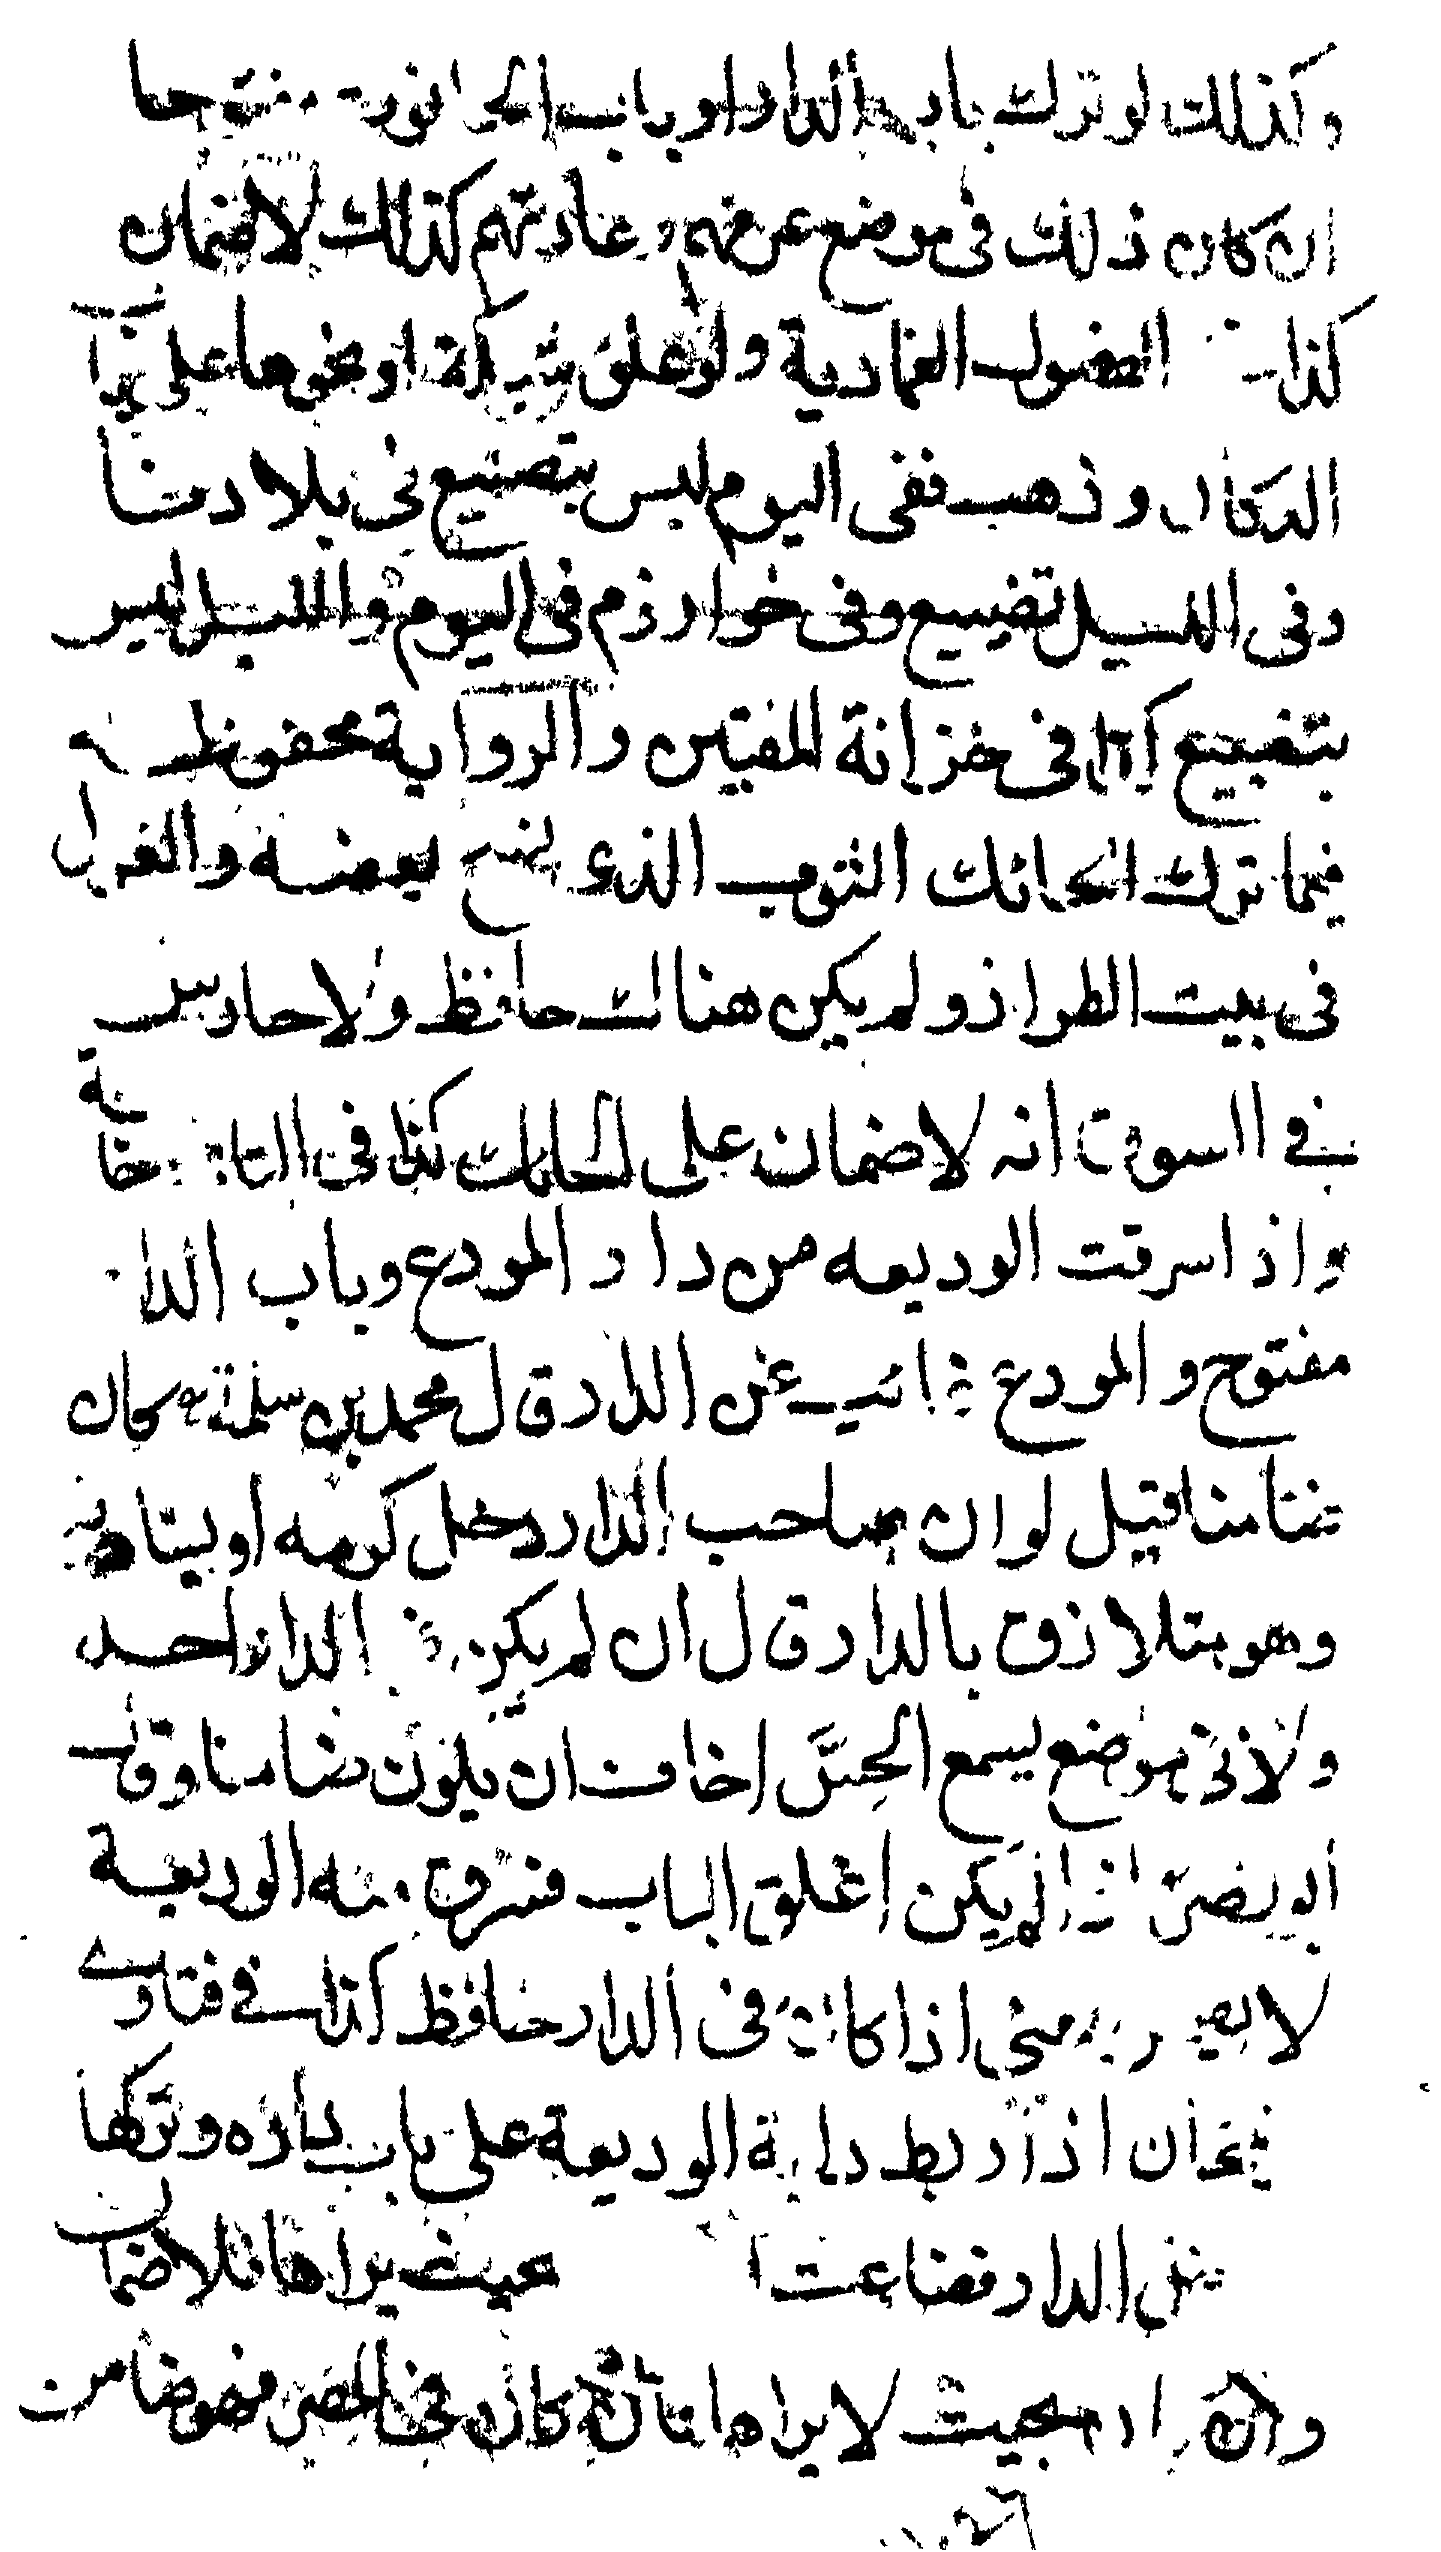 وكذلك لو ترك باب الدار او باب الحانوت مفتوحا
ان كان ذلك في موضع عرفهم وعادتهم كذلك لا ضمان
كذا الفصول العمادية ولو علق شبكة او نحوها على
الدكان وذهب ففى اليوم ليس بتضييع في بلادنا
وفى الليل تضييع وفى خوارزم فى اليوم والليل ليس
بتضييع كذا فى خزانة المفتين والرواية محفوظة
فيما ترك الحائك الثوب الذى نسج بعضه والغزل
فى بيت الطراز ولم يكن هناك حافظ ولا حارس
في السوق انه لا ضمان على الحائك كذا فى التاتارخانية
واذا سرقت الوديعه من دار المودع وباب الدار
مفتوح والمودع غائب عن الدار قال محمد بن سلمة كان
ضامنا قيل لو ان صاحب الدار دخل كرمه او بستانه
وهو متلازق بالدار قال ان لم يكن في الدار احد
ولا في موضع يسمع الحس اخاف ان يكون ضامنا وقال
أبو نصر اذا لم يكن اغلق الباب فسرق منه الوديعة
لا يضمن يعنى اذا كان فى الدار حافظ كذا في فتاوى
اذا ربط دابة الوديعة على باب داره وتركها
الدار فضاعت بحيث يراها فلا ضمان
وان بحيث لا يراها فان كان في المصر فهو ضامن